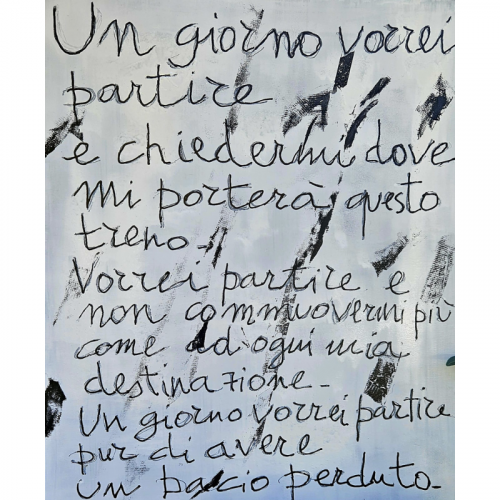 Un giorno vorrei
partire
e chiedermi dove
mi porterà questo
treno.
Vorrei partire e
non commuovermi più
come ad ogni mia
destinazione.
Un giorno vorrei partire
pur di avere
un bacio perduto.